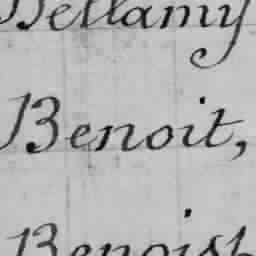 Bellamy
Benoit,
Benoist